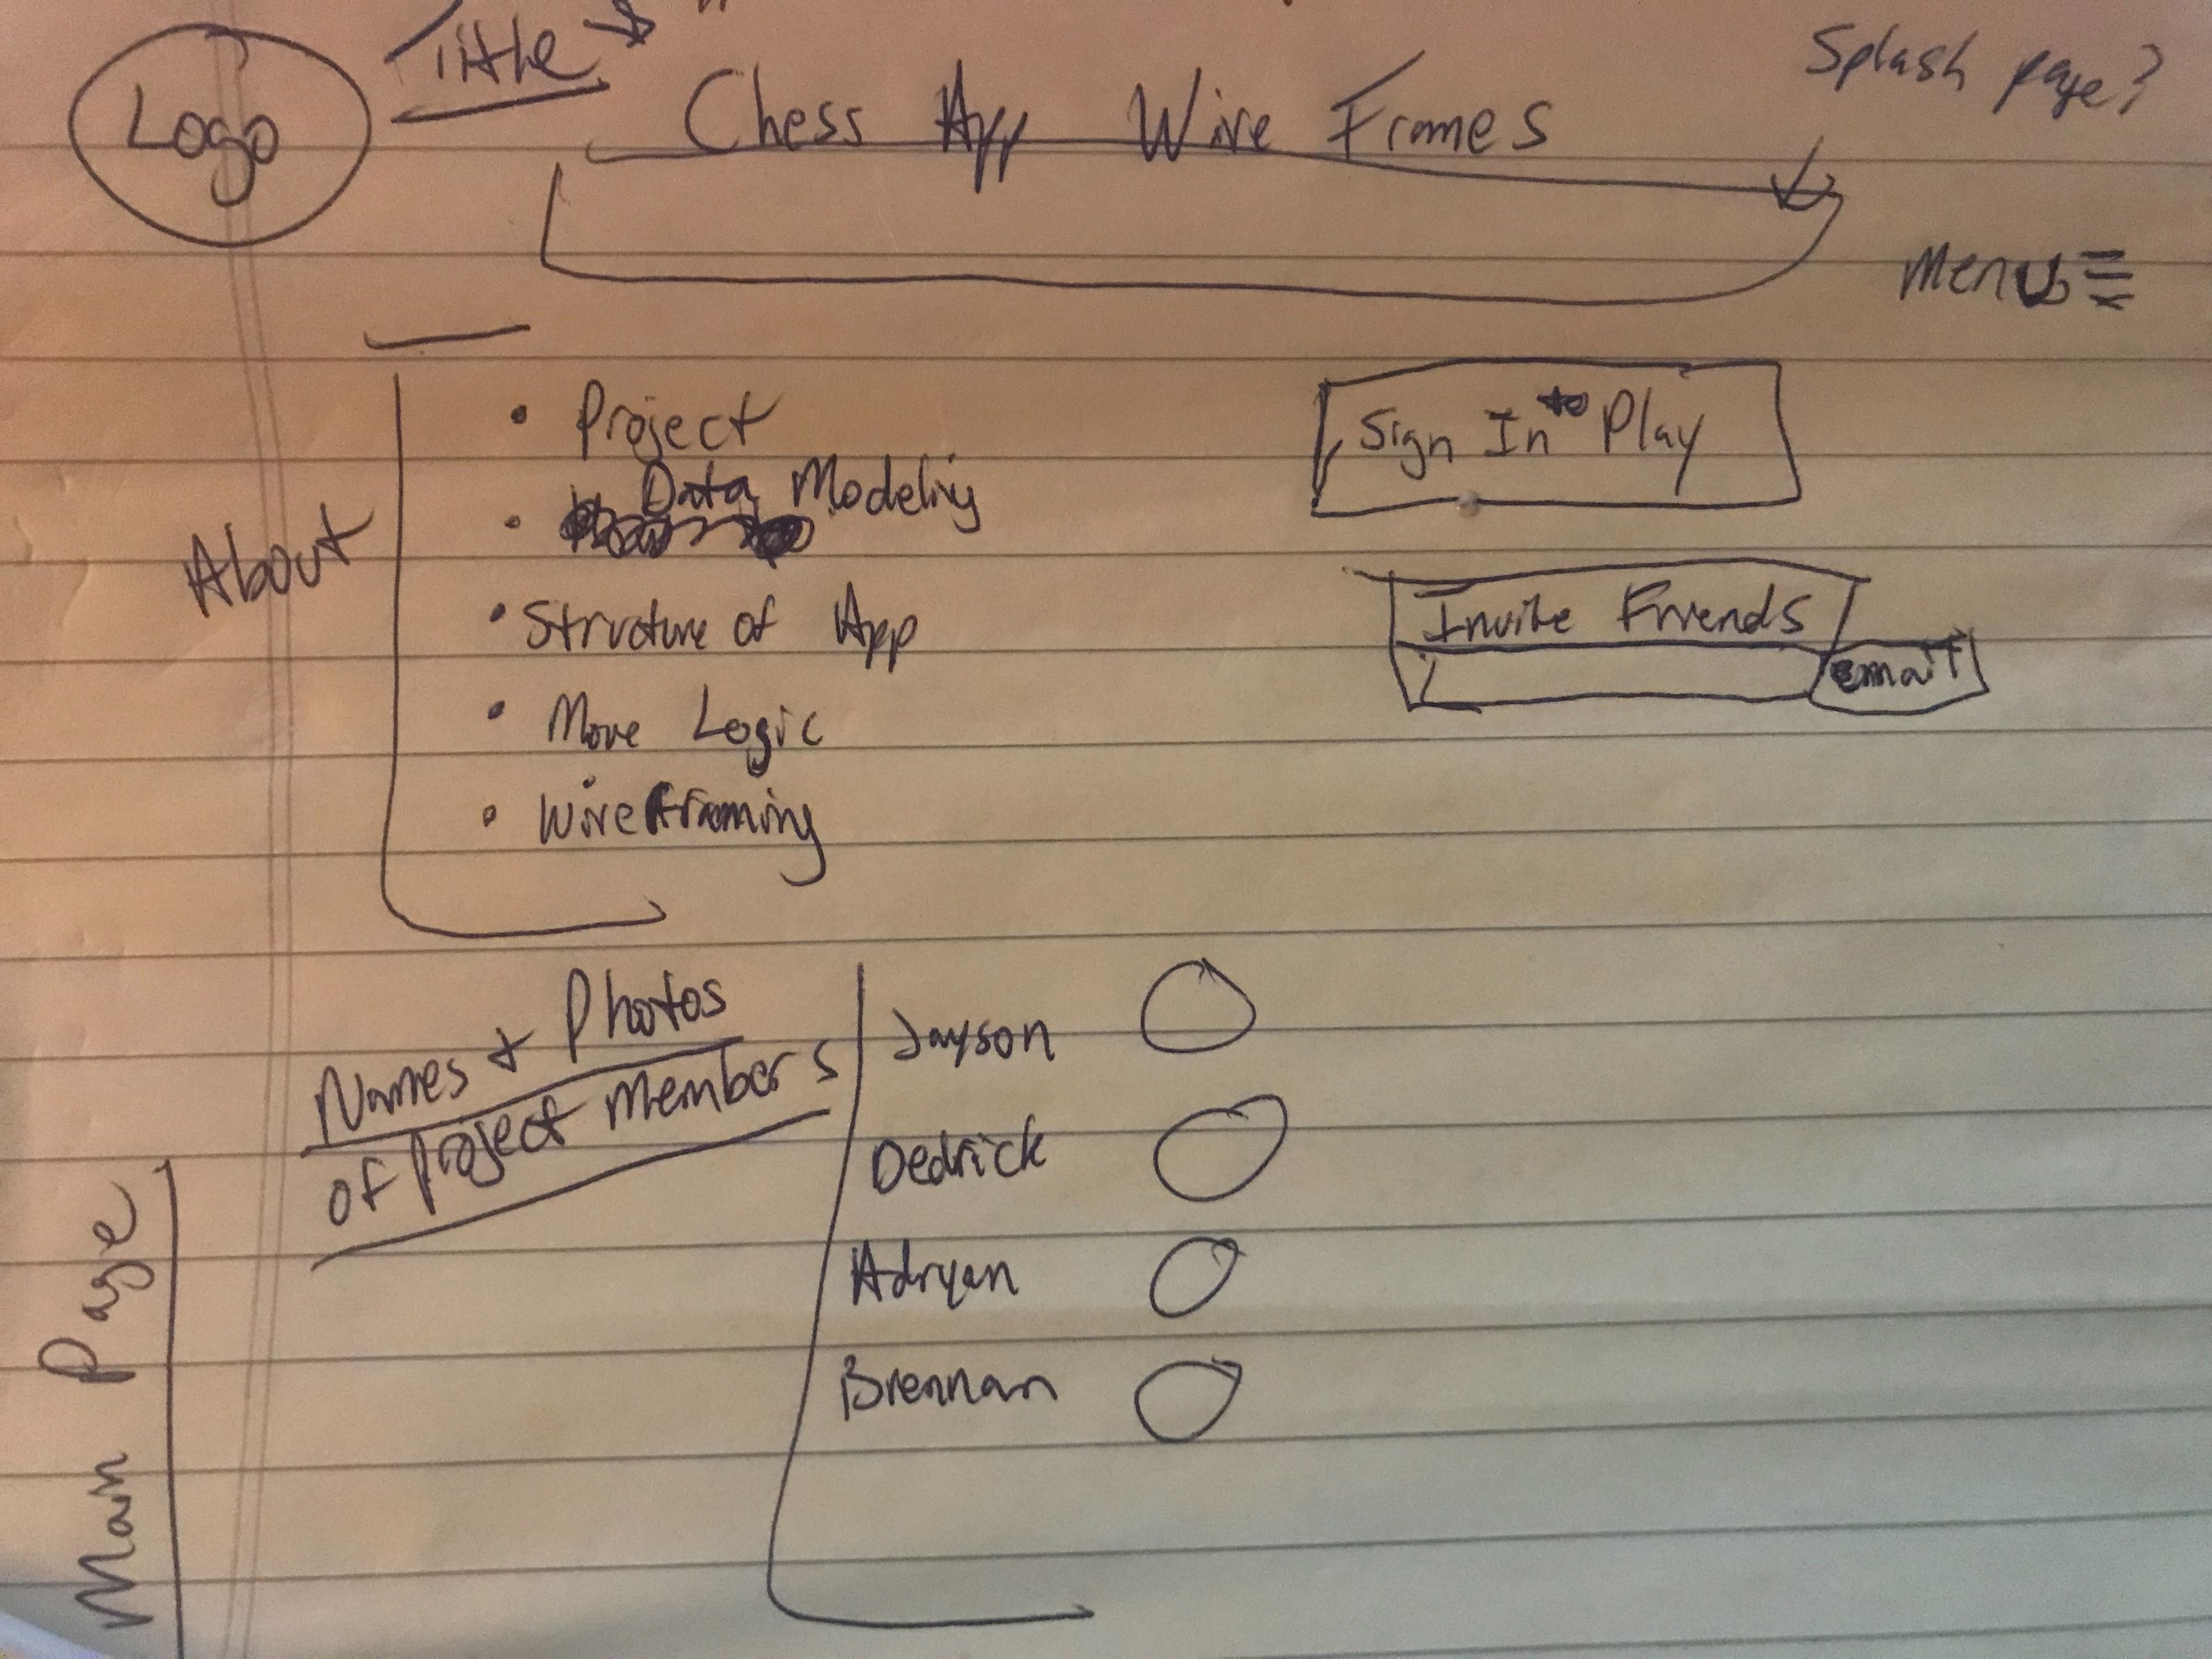 Logo
Title
Chess App Wire Frames
Splash page?
Menus
About
• Project
• Data Modeling
• Structure of App
• Move Logic
• Wireframing
Sign In to Play
Invite Friends
email
Names + Photos
of Project Members
Jayson
Dedrick
Adryan
Brennan
Main Page